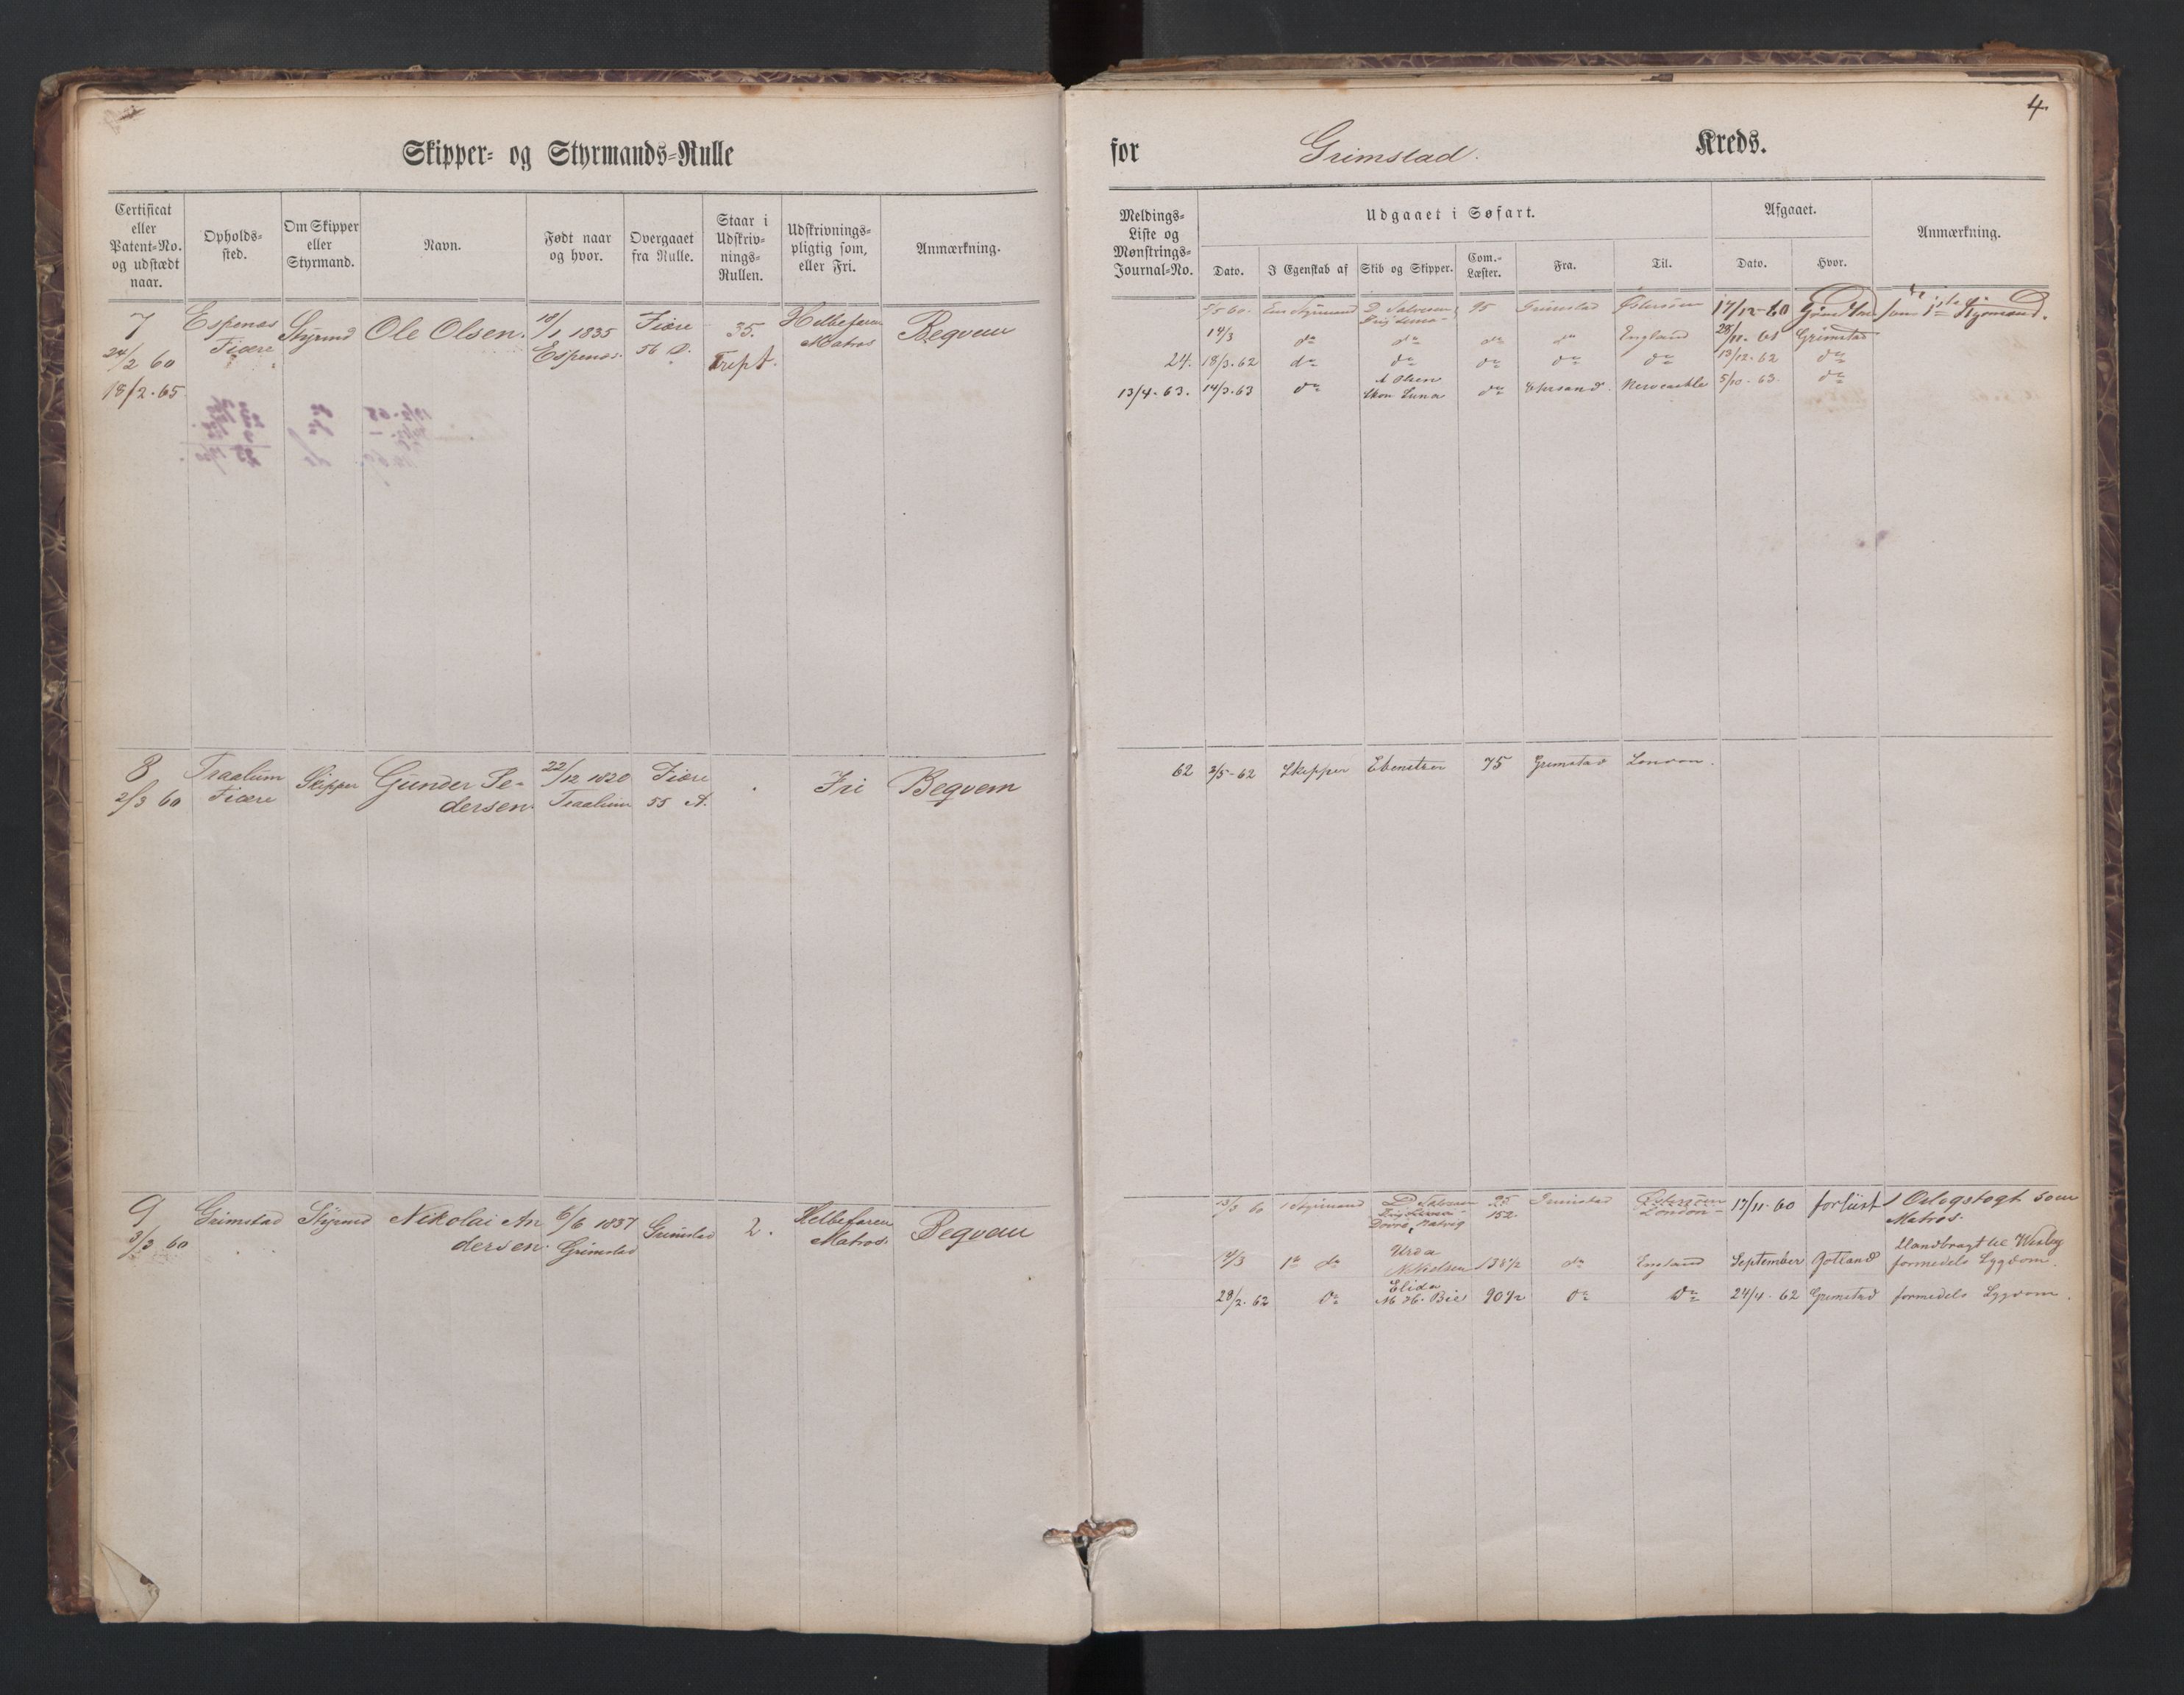 4
Skipper- og Styrmands-Rulle for Grimstad Kreds.
Certificat eller Patent-No. og udstædt naar.
Opholds-sted.
Om Skipper eller Styrmand.
Navn.
Født naar og hvor.
Overgaaet fra Rulle.
Staar i Udskriv-nings-Rullen.
Udskrivnings-pligtig som, eller Fri.
Anmærkning.
Meldings-Liste og Mønstrings-Journal-No.
Udgaaet i Søfart.
Dato.
I Egenskab af
Skib og Skipper.
Com.-Læster.
Fra.
Til.
Afgaaet.
Dato.
Hvor.
Anmærkning.
7 Espenæs Styrmd Ole Olsen. 18/1 1835 Fiære 35. Helbefaren Beqvem
24/2 60 Fiære Espenæs. 56 D. Trept. Matros
18/2.65
5/5 60. Styrmand D Salvesen 95 Grimstad Østersøen 17/12-60 som 1ste Styrmand.
14/3 do do do do England 28/11. 61 Grimstad
24. 18/3.62 do do do do do 13/12.62 do
13/4.63. 14/3.63 do A Olsen do Chrsand. Newcastle 5/10.63. do
8 Traalum Skipper Gunder Pe- 22/12 1820 Fiære Fri Beqvem
2/3 60 Fiære dersen Traalum 55 A.
62 3/5-62 Skipper Ebenetzer 75 Grimstad London.
9 Grimstad Styrmd Nikolai An 6/6 1837 Grimstad 2. Helbefaren Beqvem
3/3 60 dersen. Grimstad Matros.
13/3 60 1 Styrmand D Salvesen 95 Grimstad Østersøen 17/11.60 forliist 1 Orlogstogt som
152 London Matros.
Ilandbragt til Wisby
14/3 1e do Urda 138 1/2 do England September Gotland formedels Sygdom.
N Nielsen
Elida
28/2.62 do M H. Bie 90 1/2 do do 24/4.62 Grimstad formedels Sygdom.